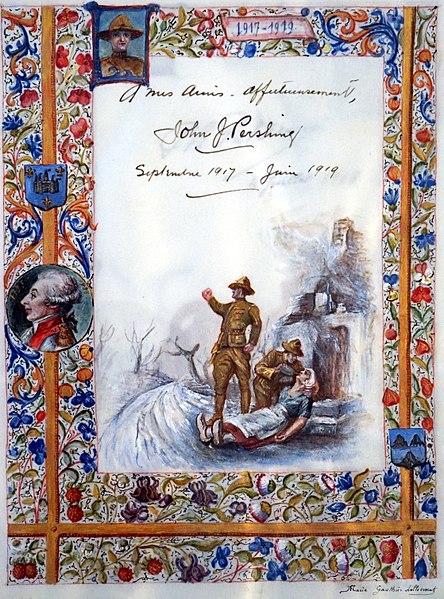 1917-1919
A mes Amis - affectueusement,
John J. Pershing
Septembre 1917 - Juin 1919
Marie Gautier